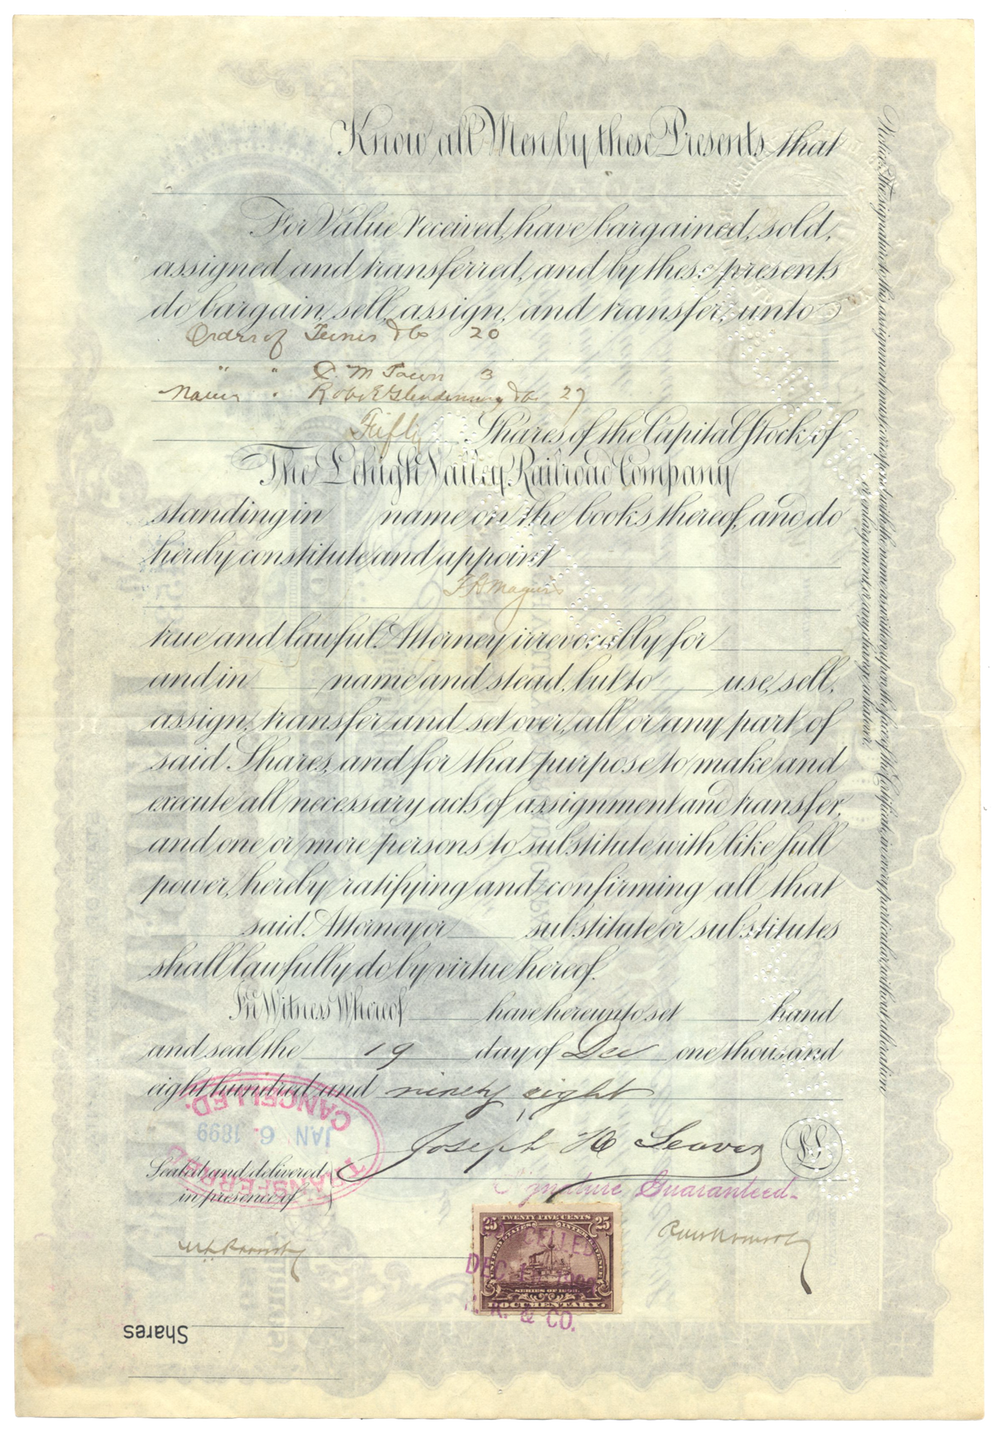 Know all Men by these Presents that
For Value received, have bargained, sold,
assigned and transferred, and by these presents
do bargain, sell, assign, and transfer, unto
Orders of & Co 20
" " M 3
" Robt Glendinning & Co 27
Fifty Shares of the Capital Stock of
The Lehigh Valley Railroad Company
standing in name on the books thereof, and do
hereby constitute and appoint
true and lawful Attorney irrevocably for
and in name and stead, but to use, sell,
assign, transfer and set over, all or any part of
said Shares, and for that purpose to make and
execute all necessary acts of assignment and transfer,
and one or more persons to substitute with like full
power, hereby ratifying and confirming all that
said Attorney or substitute or substitutes
shall lawfully do by virtue hereof.
In Witness Whereof have hereunto set hand
and seal the 19 day of Dec one thousand
eight hundred and ninety eight
Joseph H Seaver
L S
TRANSFERRED
JAN 6 1899
CANCELLED.
Sealed and delivered
in presence of
Signature Guaranteed.
25 TWENTY FIVE CENTS 25
UNITED STATES INTER. REVENUE
SERIES OF 1898.
DOCUMENTARY.
CANCELLED
DEC
& CO.
Shares
Notice, The signature to this assignment must correspond with the name as written upon the face of the Certificate, in every particular, without alteration
or enlargement or any change whatever.